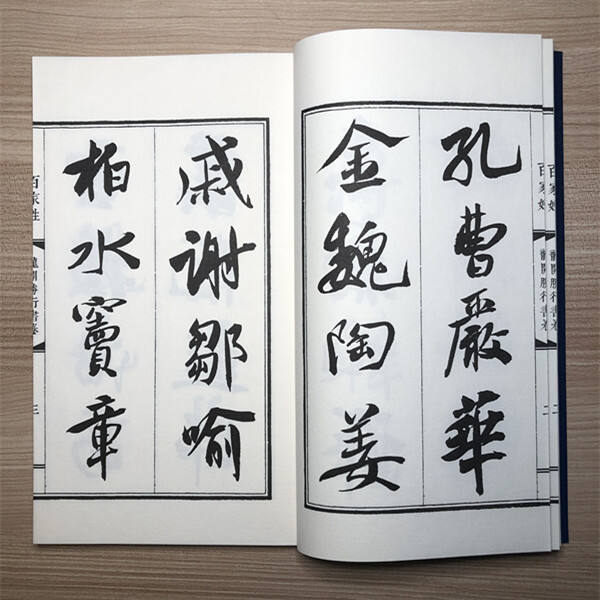 孔曹嚴華
金魏陶姜
戚謝鄒喻
柏水竇章
百家姓
二
百家姓
三